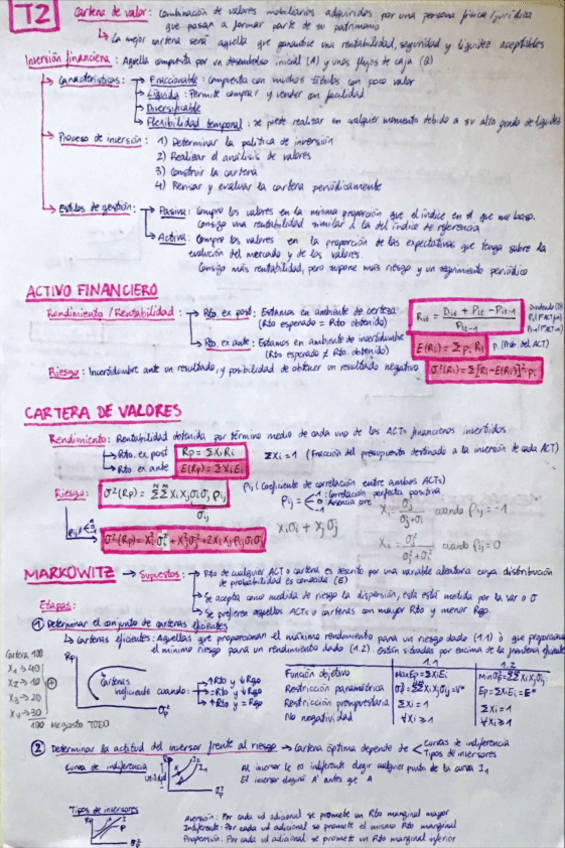 T2
Cartera de valor: Combinación de valores mobiliarios adquiridos por una persona física/jurídica
que pasan a formar parte de su patrimonio
↳ La mejor cartera será aquella que garantice una rentabilidad, seguridad y liquidez aceptables
Inversión financiera: Aquella compuesta por un desembolso inicial (A) y unos flujos de caja (Q)
→ Características: → Fraccionable: compuesta con muchos títulos con poco valor
→ Líquida: Permite comprar y vender con facilidad
→ Diversificable
→ Flexibilidad temporal: se puede realizar en cualquier momento debido a su alto grado de liquidez
→ Proceso de inversión: 1) Determinar la política de inversión
2) Realizar el análisis de valores
3) Construir la cartera
4) Revisar y evaluar la cartera periódicamente
→ Estilos de gestión: → Pasiva: Compro los valores en la misma proporción que el índice en el que me baso.
Consigo una rentabilidad similar a la del índice de referencia
→ Activa: Compro los valores en la proporción de las expectativas que tenga sobre la
evolución del mercado y de los valores.
Consigo más rentabilidad, pero supone más riesgo y un seguimiento periódico
ACTIVO FINANCIERO
Rendimiento / Rentabilidad: → Rto. ex post: Estamos en ambiente de certeza
(Rto esperado = Rto obtenido)
Rit = Dit + Pit - Pit-1
Pit-1
→ Rto. ex ante: Estamos en ambiente de incertidumbre
(Rto esperado ≠ Rto. obtenido)
E(Ri) = Σ pi Ri
p (Prob. del ACT)
Riesgo: Incertidumbre ante un resultado, y posibilidad de obtener un resultado negativo
σ²(Ri) = Σ[Ri - E(Ri)]² pi
CARTERA DE VALORES
Rendimiento: Rentabilidad obtenida por término medio de cada uno de los ACTs financieros invertidos
→ Rto. ex post Rp = ΣXiRi
ΣXi = 1 (Fracción del presupuesto destinado a la inversión de cada ACT)
→ Rto. ex ante E(Rp) = ΣXiEi
Riesgo: σ²(Rp) = ΣΣ Xi Xj σi σj ρij
σij
ρij (Coeficiente de correlación entre ambos ACTs)
ρij =
1: Correlación perfecta positiva
Xi = σj
σj+σi
cuando ρij = -1
Xiσi + Xjσj
σ²(Rp) = Xi²σi² + Xj²σj² + 2XiXjρijσiσj
Xi = σj²
σi²+σj²
cuando ρij = 0
MARKOWITZ → Supuestos: → Rto de cualquier ACT o cartera es descrito por una variable aleatoria cuya distribución
de probabilidad es conocida (E)
→ Se acepta como medida de riesgo la dispersión, esta está medida por la var o σ
→ Se prefieren aquellos ACTs o carteras con mayor Rto y menor Rgo.
Etapas:
① Determinar el conjunto de carteras eficientes
↳ Carteras eficientes: Aquellas que proporcionan el máximo rendimiento para un riesgo dado (1.1) o que proporcionan
el mínimo riesgo para un rendimiento dado (1.2). Están situadas por encima de la frontera eficiente
Cartera 100
X1 → 40
X2 → 10
X3 → 20
X4 → 30
100 Me gasto TODO
Rp
Carteras
ineficiente cuando:
→ ↑Rto y ↓Rgo
→ =Rto y ↓Rgo
→ ↑Rto y =Rgo
σp²
1.1
1.2
Función objetivo
MaxEp = ΣXiEi
Minσp² = ΣΣXiXjσij
Restricción paramétrica
σp² = ΣΣXiXjσij = V*
Ep = ΣXiEi = E*
Restricción presupuestaria
ΣXi = 1
ΣXi = 1
No negatividad
② Determinar la actitud del inversor frente al riesgo → Cartera óptima depende de
Curvas de indiferencia
Tipos de inversores
Curva de indiferencia
Al inversor le es indiferente elegir cualquier punto de la curva I1
El inversor elegirá A' antes que A
σp²
Tipos de inversores
Aversión: Por cada ud adicional se promete un Rto marginal mayor
Indiferente: Por cada ud adicional se promete el mismo Rto marginal
Propensión: Por cada ud adicional se promete un Rto marginal inferior